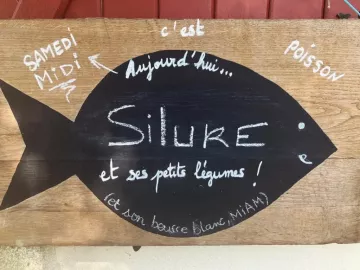 c'est
SAMEDI
MIDI
POISSON
Aujourd'hui...
SILURE
et ses petits légumes !
(et son beurre blanc, MIAM)